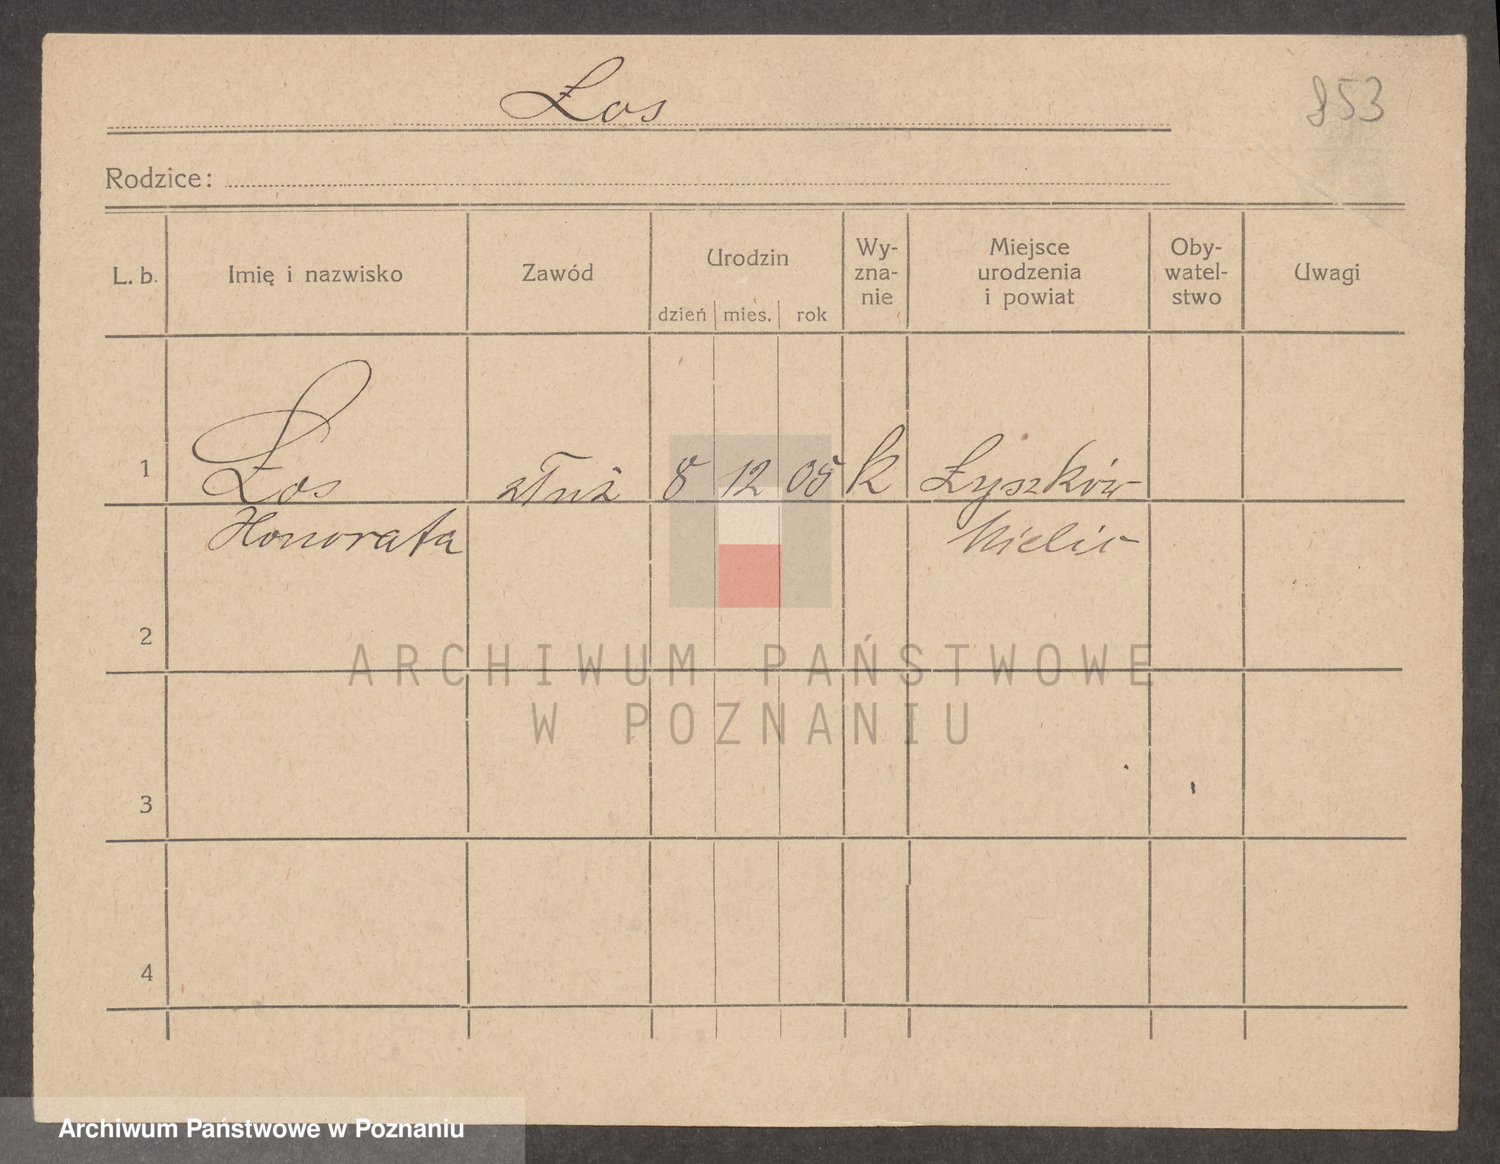 Łos
853
Rodzice:
L. b.
Imię i nazwisko
Zawód
Urodzin
dzień mies. rok
Wy-
zna-
nie
Miejsce
urodzenia
i powiat
Oby-
watel-
stwo
Uwagi
1
Łos
8 12 05 k Łyszków
Honorata
2
3
4
ARCHIWUM PAŃSTWOWE
W POZNANIU
Archiwum Państwowe w Poznaniu